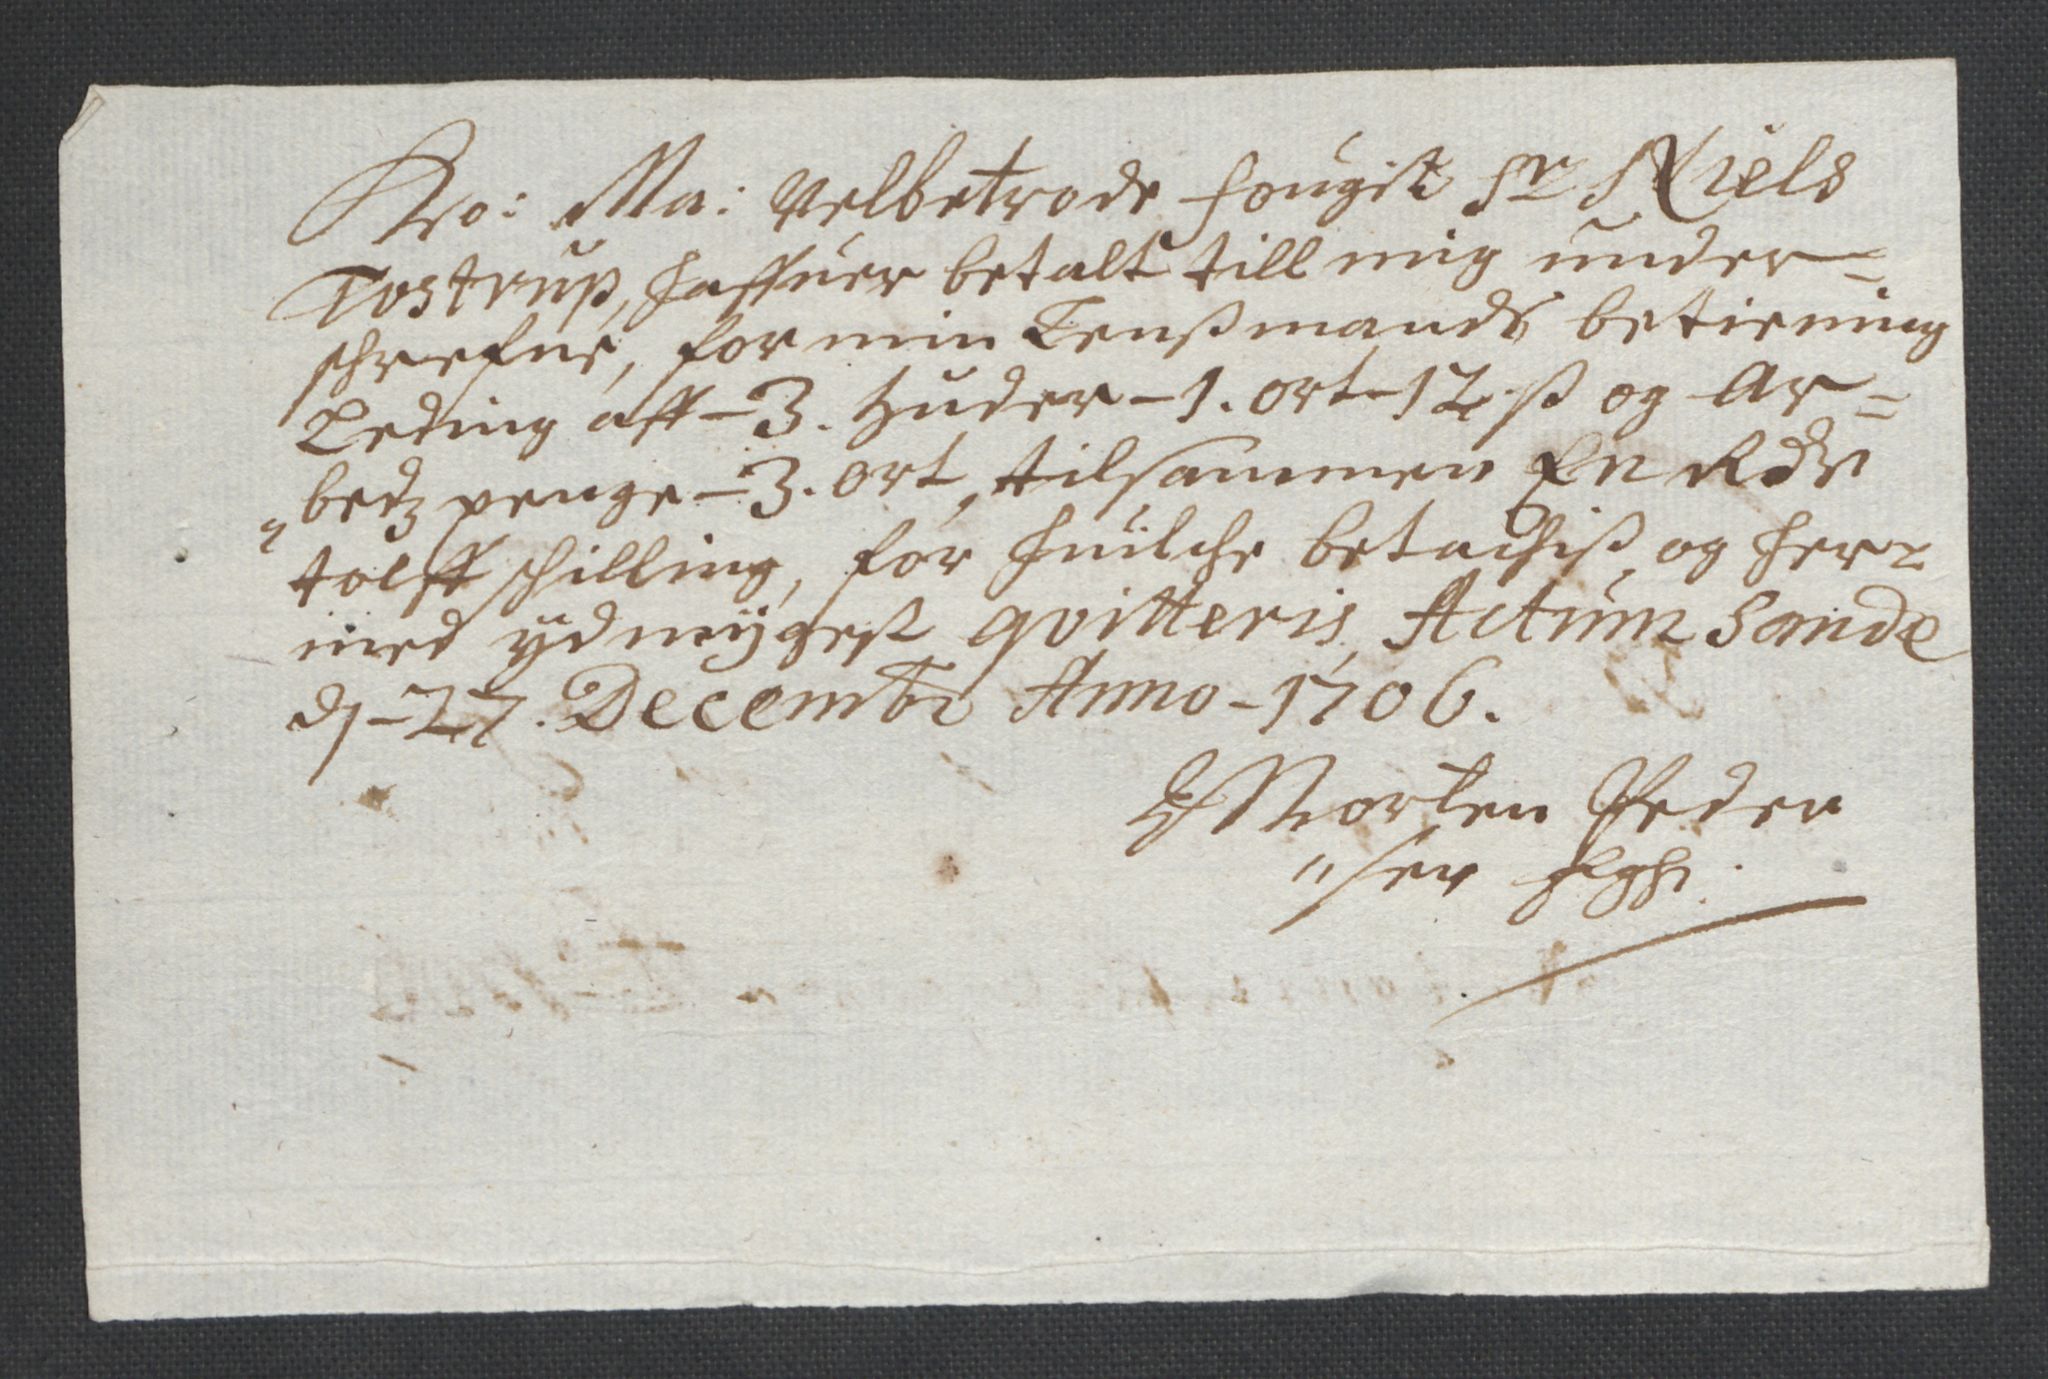 Kro: Ma: Velbetrode fougit Sr Niels
Tostrup, haffuer betalt till mig under=
schrefne, for min Lensmands betiening
Leding aff - 3. huder - 1. ort - 12 ß og Ar=
"bedz penge - 3. ort, tilsammen En Rdr
tolff schilling, for huilche betachis, og her
med ydmygest qvitteris, Actum Sande
d - 27. Decembr Anno - 1706.
Morten Peder
"sen